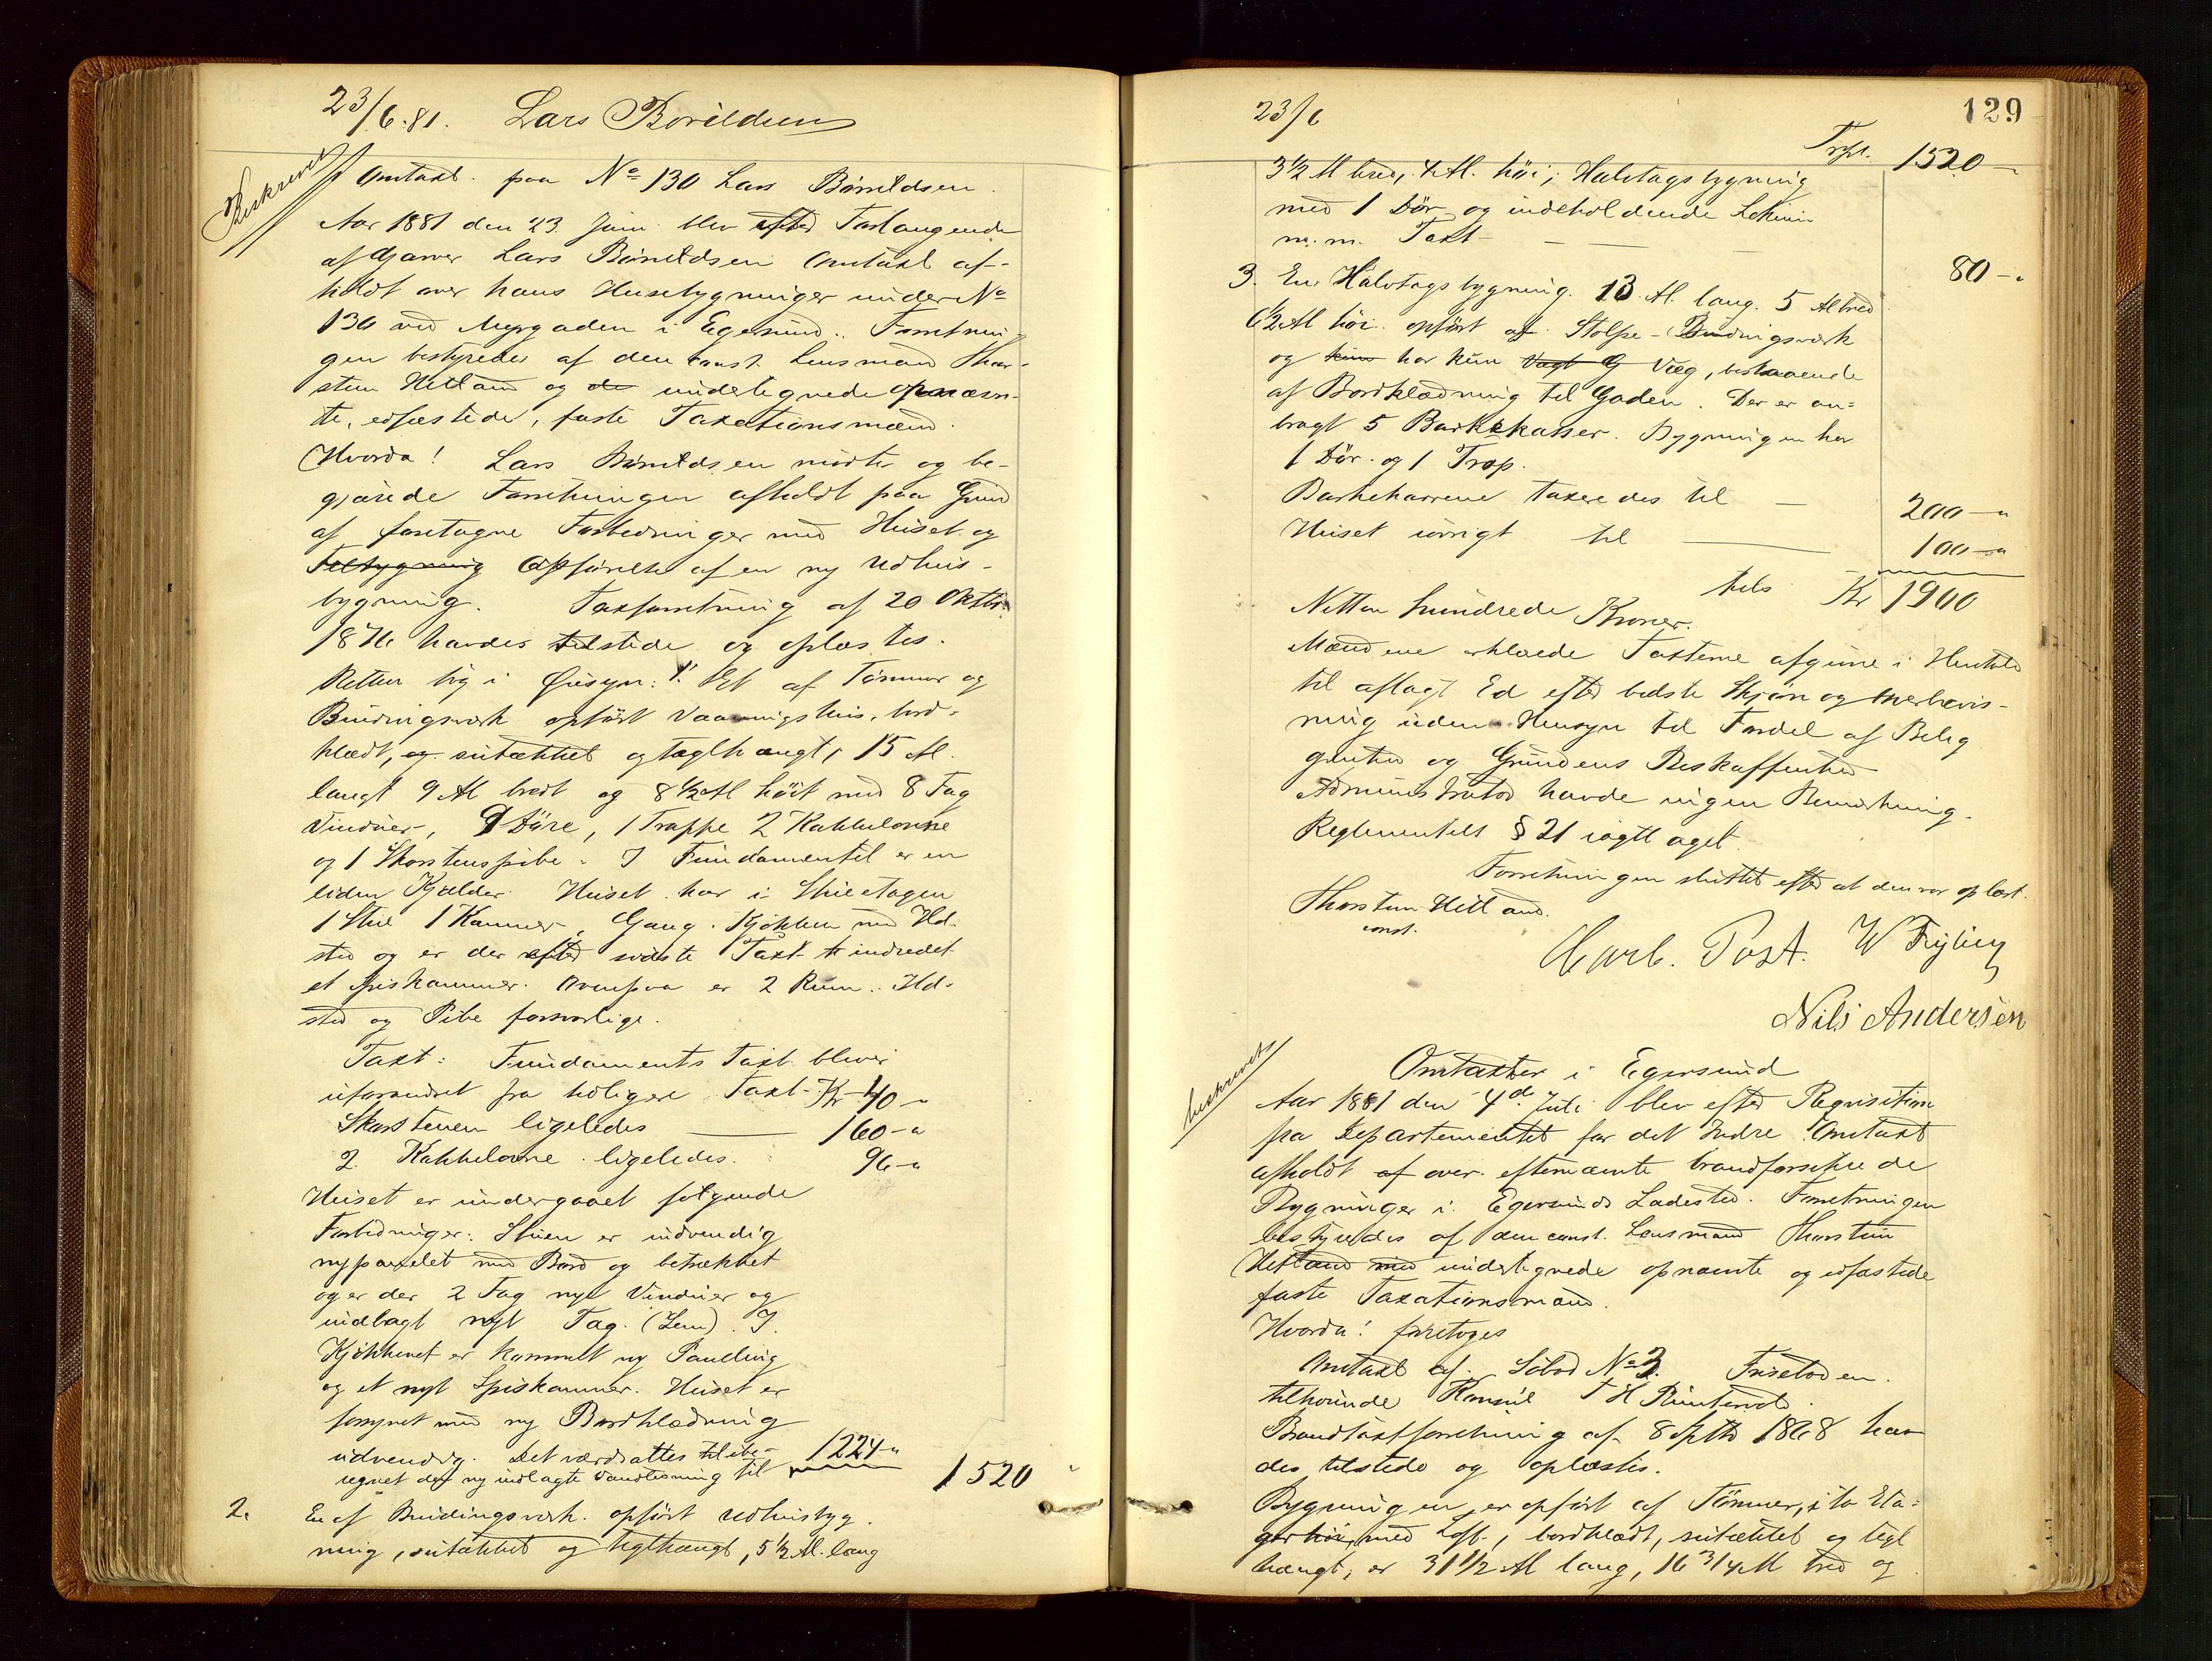 23/6.81. Lars Borildsen
Beskrevet
Omtaxt. paa No 130 Lars Börildsen.
Aar 1881 den 23 Juni blev efter Forlangende
af Garver Lars Börildsen Omtaxt af-
holdt over hans Husebygninger under No
130 ved Myrgaden i Egersund. Forretnin-
gen bestyredes af den const. Lensmand Thor-
stein Hetland og de undertegnede opnævn-
te, edfæstede, faste Taxationsmænd.
Hvorda! Lars Börildsen mödte og be-
gjærede Forretningen afholdt paa Grund
af foretagne Forbedringer med Huset og
Tilbygning Opförelse af en ny Udhus-
bygning. Taxforretning af 20 Oktbr
1876 havdes tilstede og oplæstes.
Retten tog i Öiesyn: 1. Et af Tömmer og
Bindingsværk opfört Vaaningshus, bord-
klædt, og suttækket og taglhængt, 15 Al.
langt 9 Al bredt og 8 1/2 Al höit med 8 Fag
Vinduer, 9 Döre, 1 Trappe 2 Kakkelovne
og 1 Skorstenspibe. I Fundamentet er en
liden Kjælder. Huset har i Stueetagen
1 Stue 1 Kammer, Gang, Kjökken med Ild-
sted og er der efter sidste Taxt indredet
et Spiskammer. Ovenpaa er 2 Rum. Ild-
sted og Pibe forsvarlige.
Taxt: Fundaments Taxt bliver
uforandret fra tidligere Taxt Kr 40 -"
Skorstenen ligeledes 160 -"
2 Kakkelovne ligeledes. 96 -"
Huset er undergaaet følgende
Forbedringer: Stuen er indvendig
nypanelet med Bord og betrækket
og er der 2 Fag nye Vinduer og
indlagt nyt Tag. (Lem). I
Kjökkenet er kommet ny Panelling
og et nyt Spiskammer. Huset er
forsynet med ny Bordklædning
udvendig. Det værdsattes iberegnet
den ny indlagte Vandledning til 1224 -"
1520
2. En af Bindingsværk opfört Udhusbyg-
ning, suttækket og teglhængt, 5 1/2 Al. lang
23/6
129
Trsp. 1520 -
3 1/2 Al bred, 4 Al. höi; Halvtagsbygning
med 1 Dör og indeholdende Lokum
m.m. Taxt 80 -"
3. En Halvtagsbygning. 13 Al. lang. 5 Al bred
6 1/2 Al höi. opfört af Stolpe-Bindingsværk
og har kun Væg, bestaaende
af Bordklædning til Gaden. Der er an-
bragt 5 Barkekasser. Bygningen har
1 Dör og 1 Trap.
Barkekarrene taxeredes til 200 -"
Huset iövrigt til 100 -"
tils Kr 1900
Nitten hundrede Kroner.
Mændene erklærede Taxterne afgivne i Henhold
til aflagt Ed efter bedste Skjön og Overbevis-
ning uden Hensyn til Fordel af Belig-
genhed og Grundens Beskaffenhed
Administrator havde ingen Bemærkning.
Reglementets § 21 iagttaget.
Forretningen sluttet efter at den var oplæst.
Thorstein Hetland.
const.
Carl. Post. W Feyling
Nils Andersen
beskrevet
Omtaxter i Egersund
Aar 1881 den 4de Juli blev efter Requisition
fra Departementet for det Indre Omtaxt
afholdt af over efternævnte brandforsikrede
Bygninger i Egersunds Ladested. Forretningen
bestyredes af den const. Lensmand Thorstein
Hetland med undertegnede opnævnte og edfæstede
faste Taxationsmænd.
Hvorda! foretoges
Omtaxt af Söbod No 3. Friseboden.
tilhörende Konsul T H Puntervold.
Brandtaxtforretning af 8 Septbr 1868 hav-
des tilstede og oplæstes.
Bygningen er opfört af Tömmer, i to Eta-
ger höi, med Loft, bordklædt, suttækket og tegl
hængt, er 31 1/2 Al lang, 16 3/4 Al bred og